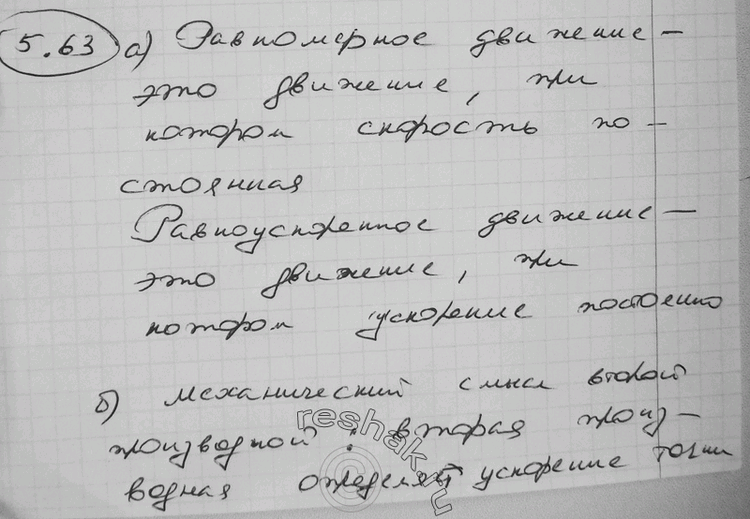 5.63 а) Равномерное движение –
это движение, при
котором скорость по-
стоянная
Равноускоренное движение –
это движение, при
котором ускорение постоенно
б) механический смысл второй
производной : вторая произ-
водная определяет ускорение точки
reshak.ru